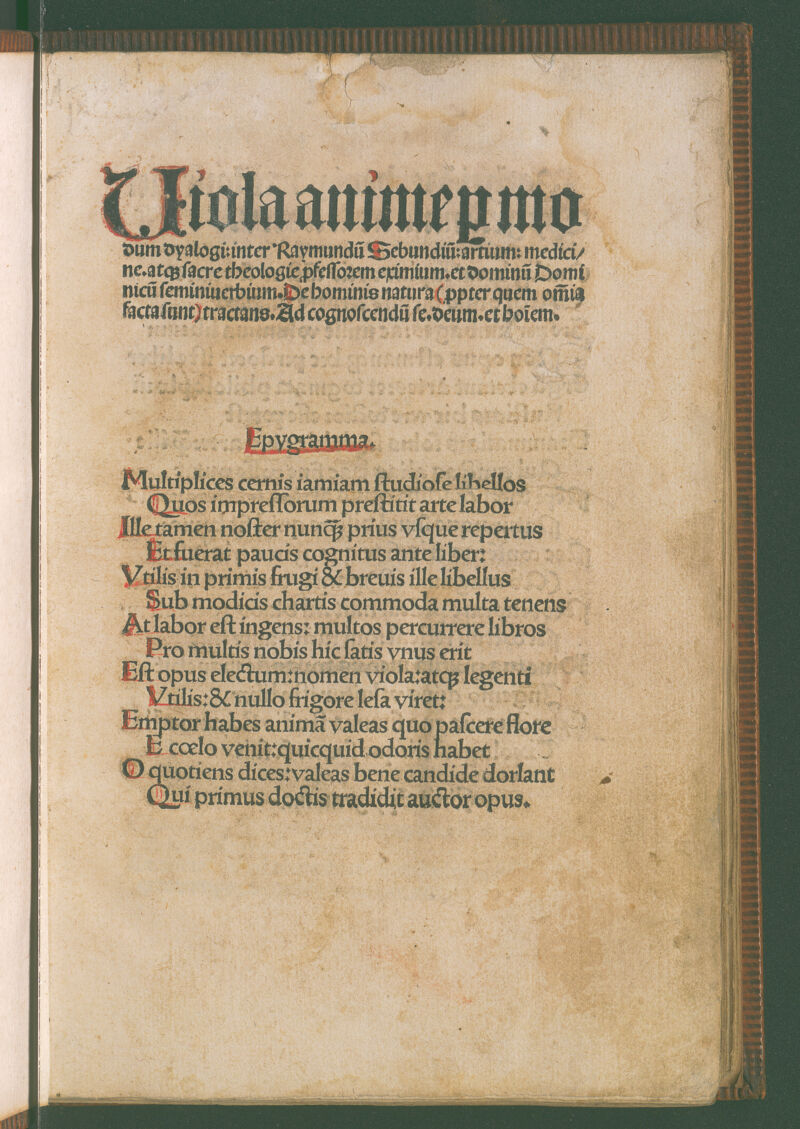 Uiola anime ꝑ mo
dum dyalogi: inter Raymundū Sebundiū: artium: medici/
ne. atqꝫ sacre theologie ꝓfessorem eximium. et dominū Domi
nicū seminiuerbium. De hominis natura (ꝓpter quem om̄ia
facta sunt) tractans. Ad cognoscendū se. deum. et hoīem.
Epygramma.
Multiplices cernis iamiam studiose libellos
Quos impressorum prestitit arte labor
Ille tamen noster nunq̄ꝫ prius vsque repertus
Et fuerat paucis cognitus ante liber:
Vtilis in primis frugi & breuis ille libellus
Sub modicis chartis commoda multa tenens
At labor est ingens: multos percurrere libros
Pro multis nobis hic satis vnus erit
Est opus electum: nomen viola: atqꝫ legenti
Vtilis: & nullo frigore lesa viret:
Emptor habes animā valeas quo pascere flore
E cœlo venit: quicquid odoris habet
O quotiens dices: valeas bene candide dorlant
Qui primus doctis tradidit auctor opus.